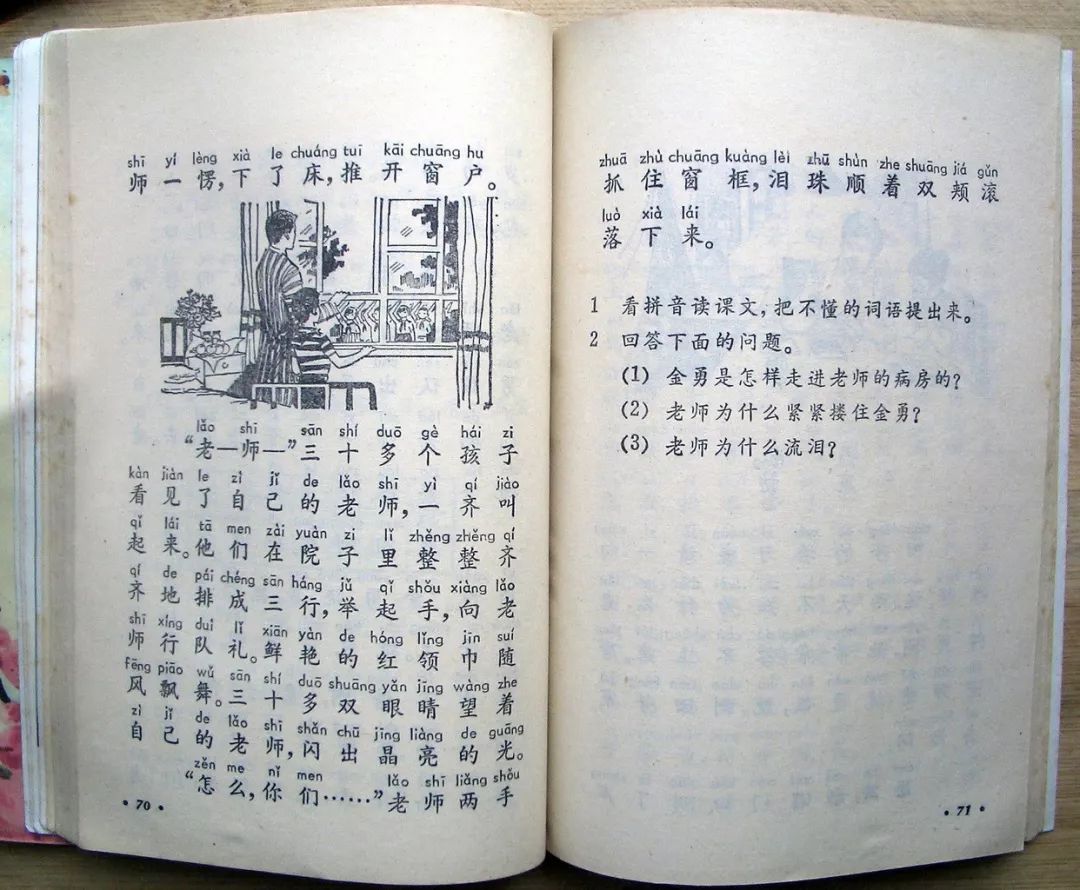 shī yí lèng xià le chuáng tuī kāi chuāng hu
师一愣，下了床，推开窗户。
lǎo shī sān shí duō gè hái zi
“老—师—”三十多个孩子
kàn jiàn le zì jǐ de lǎo shī yì qí jiào
看见了自己的老师，一齐叫
qǐ lái tā men zài yuàn zi lǐ zhěng zhěng qí
起来。他们在院子里整整齐
qí de pái chéng sān háng jǔ qǐ shǒu xiàng lǎo
齐地排成三行，举起手，向老
shī xíng duì lǐ xiān yàn de hóng lǐng jīn suí
师行队礼。鲜艳的红领巾随
fēng piāo wǔ sān shí duō shuāng yǎn jīng wàng zhe
风飘舞。三十多双眼睛望着
zì jǐ de lǎo shī shǎn chū jīng liàng de guāng
自己的老师，闪出晶亮的光。
zěn me nǐ men lǎo shī liǎng shǒu
“怎么，你们……”老师两手
• 70 •
zhuā zhù chuāng kuàng lèi zhū shùn zhe shuāng jiá gǔn
抓住窗框，泪珠顺着双颊滚
luò xià lái
落下来。
1 看拼音读课文，把不懂的词语提出来。
2 回答下面的问题。
(1) 金勇是怎样走进老师的病房的？
(2) 老师为什么紧紧搂住金勇？
(3) 老师为什么流泪？
• 71 •